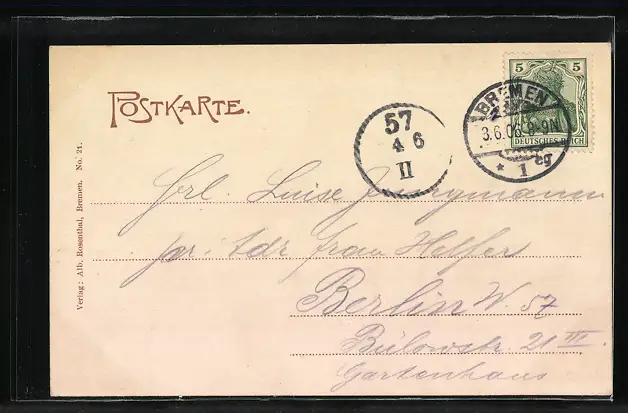 POSTKARTE.
5 5
DEUTSCHES REICH
BREMEN
3.6.06. 8-9N
* 1 eg
57
4 6
II
Frl. Luise Jungmann
pr. Adr. Frau Helfer
Berlin W. 57
Bülowstr. 21 III.
Gartenhaus
Verlag: Alb. Rosenthal, Bremen. No. 21.